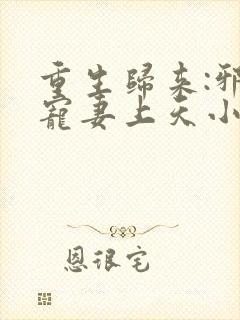 重生歸來:邪
寵妻上天小
恩很宅